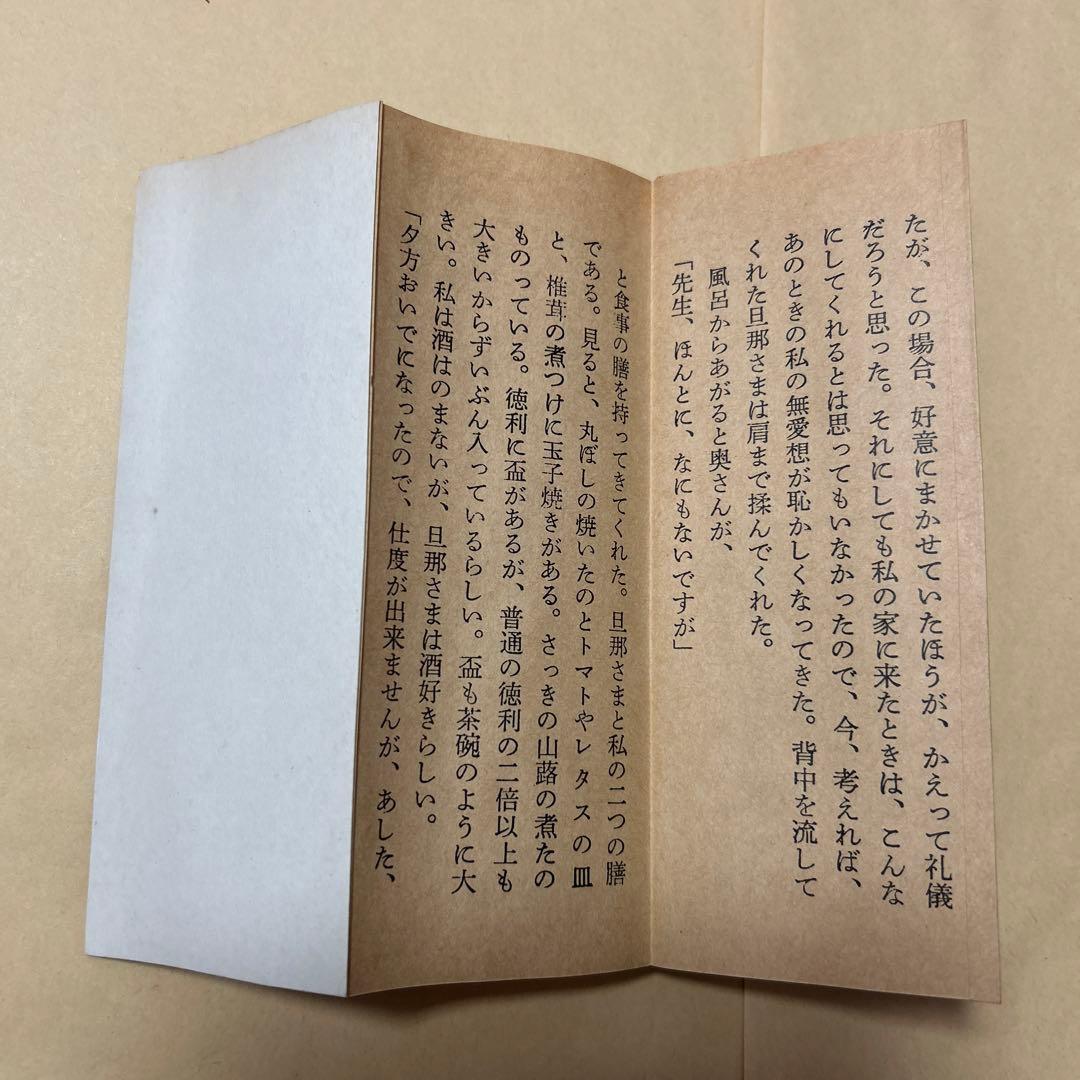 たが、この場合、好意にまかせていたほうが、かえって礼儀
だろうと思った。それにしても私の家に来たときは、こんな
にしてくれるとは思ってもいなかったので、今、考えれば、
あのときの私の無愛想が恥かしくなってきた。背中を流して
くれた旦那さまは肩まで揉んでくれた。
風呂からあがると奥さんが、
「先生、ほんとに、なにもないですが」
と食事の膳を持ってきてくれた。旦那さまと私の二つの膳
である。見ると、丸ぼしの焼いたのとトマトやレタスの皿
と、椎茸の煮つけに玉子焼きがある。さっきの山蕗の煮たの
ものっている。徳利に盃があるが、普通の徳利の二倍以上も
大きいからずいぶん入っているらしい。盃も茶碗のように大
きい。私は酒はのまないが、旦那さまは酒好きらしい。
「夕方おいでになったので、仕度が出来ませんが、あした、